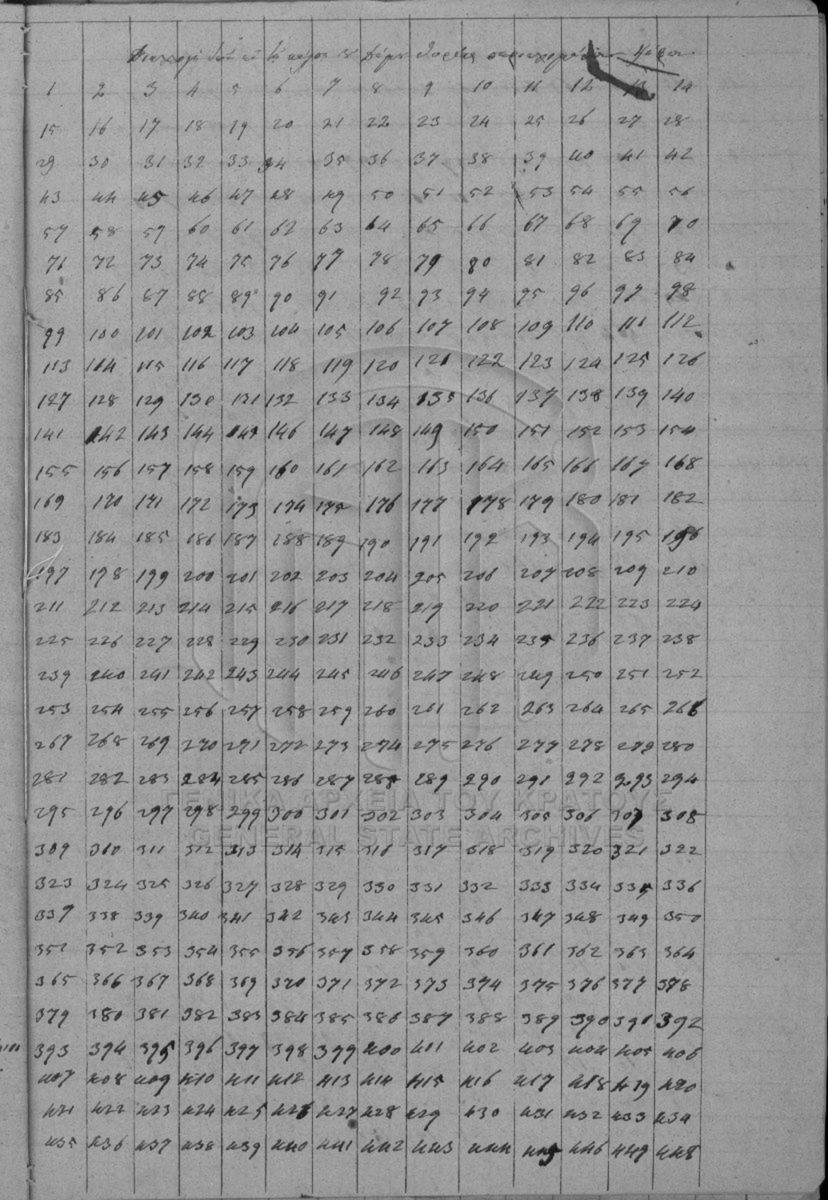 1 2 3 4 5 6 7 8 9 10 11 12 13 14
15 16 17 18 19 20 21 22 23 24 25 26 27 28
29 30 31 32 33 34 35 36 37 38 39 40 41 42
43 44 45 46 47 48 49 50 51 52 53 54 55 56
57 58 59 60 61 62 63 64 65 66 67 68 69 70
71 72 73 74 75 76 77 78 79 80 81 82 83 84
85 86 87 88 89 90 91 92 93 94 95 96 97 98
99 100 101 102 103 104 105 106 107 108 109 110 111 112
113 114 115 116 117 118 119 120 121 122 123 124 125 126
127 128 129 130 131 132 133 134 135 136 137 138 139 140
141 142 143 144 145 146 147 148 149 150 151 152 153 154
155 156 157 158 159 160 161 162 163 164 165 166 167 168
169 170 171 172 173 174 175 176 177 178 179 180 181 182
183 184 185 186 187 188 189 190 191 192 193 194 195 196
197 198 199 200 201 202 203 204 205 206 207 208 209 210
211 212 213 214 215 216 217 218 219 220 221 222 223 224
225 226 227 228 229 230 231 232 233 234 235 236 237 238
239 240 241 242 243 244 245 246 247 248 249 250 251 252
253 254 255 256 257 258 259 260 261 262 263 264 265 266
267 268 269 270 271 272 273 274 275 276 277 278 279 280
281 282 283 284 285 286 287 288 289 290 291 292 293 294
ΓΕΝΙΚΑ ΑΡΧΕΙΑ ΤΟΥ ΚΡΑΤΟΥΣ
295 296 297 298 299 300 301 302 303 304 305 306 307 308
GENERAL STATE ARCHIVES
309 310 311 312 313 314 315 316 317 318 319 320 321 322
323 324 325 326 327 328 329 330 331 332 333 334 335 336
337 338 339 340 341 342 343 344 345 346 347 348 349 350
351 352 353 354 355 356 357 358 359 360 361 362 363 364
365 366 367 368 369 370 371 372 373 374 375 376 377 378
379 380 381 382 383 384 385 386 387 388 389 390 391 392
393 394 395 396 397 398 399 400 401 402 403 404 405 406
407 408 409 410 411 412 413 414 415 416 417 418 419 420
421 422 423 424 425 426 427 428 429 430 431 432 433 434
435 436 437 438 439 440 441 442 443 444 445 446 447 448